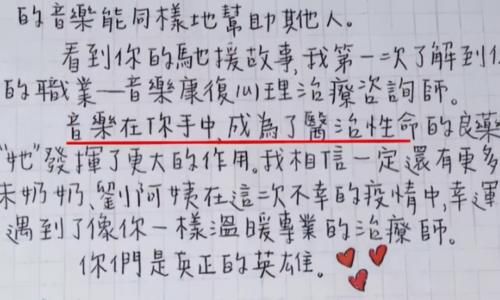 的音樂能同樣地幫助其他人。
看到你的馳援故事,我第一次了解到
的職業—音樂康復心理治療咨詢師。
音樂在你手中,成為了醫治性命的良藥
"她"發揮了更大的作用。我相信一定還有更多
朱奶奶、劉阿姨在這一次不幸的疫情中,幸運
遇到了像你一樣溫暖專業的治療師。
你們是真正的英雄。